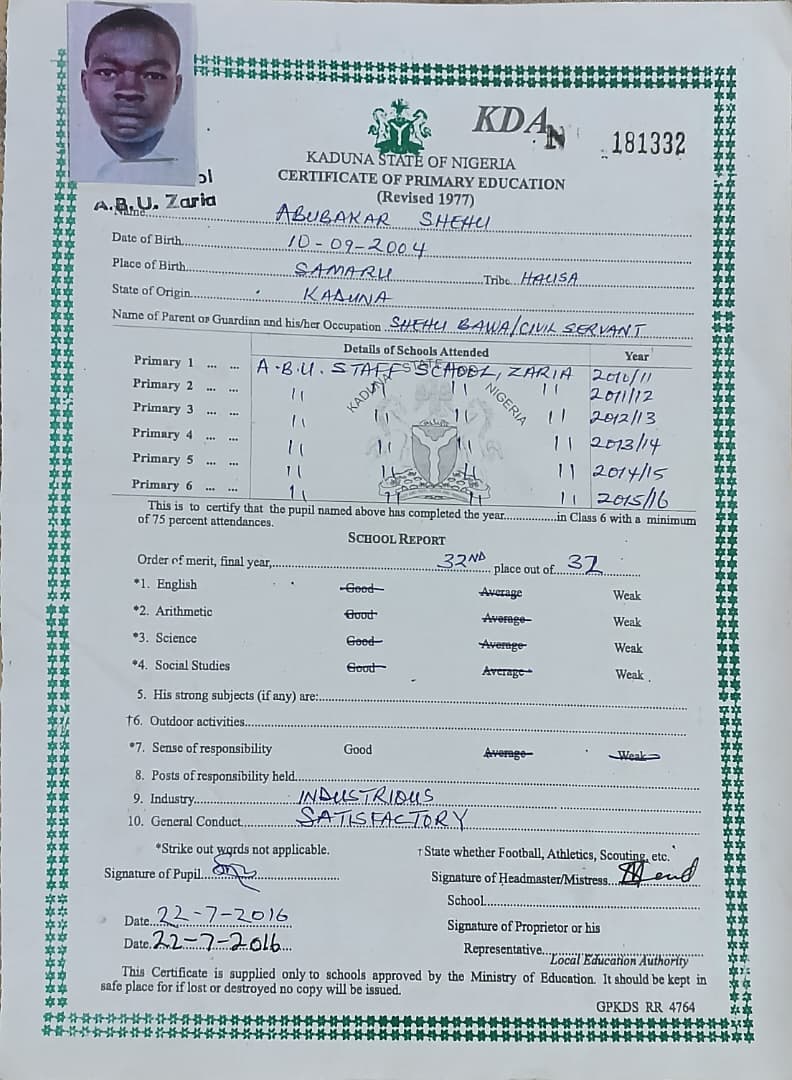 KDA N 181332
KADUNA STATE OF NIGERIA
CERTIFICATE OF PRIMARY EDUCATION
(Revised 1977)
ol
A.B.U. Zaria
Name ABUBAKAR SHEHU
Date of Birth 10-09-2004
Place of Birth SAMARU Tribe HAUSA
State of Origin KADUNA
Name of Parent or Guardian and his/her Occupation SHEHU BAWA/CIVIL SERVANT
Details of Schools Attended Year
Primary 1 ... ... A.B.U. STAFF SCHOOL, ZARIA 2010/11
Primary 2 ... ... 11 11 11 2011/12
Primary 3 ... ... 11 11 11 11 2012/13
Primary 4 ... ... 11 11 11 11 2013/14
Primary 5 ... ... 11 11 11 11 2014/15
Primary 6 ... ... 11 11 11 11 2015/16
KADUNA STATE NIGERIA
This is to certify that the pupil named above has completed the year................in Class 6 with a minimum
of 75 percent attendances.
SCHOOL REPORT
Order of merit, final year, 32ND place out of 32
*1. English Good Average Weak
*2. Arithmetic Good Average Weak
*3. Science Good Average Weak
*4. Social Studies Good Average Weak
5. His strong subjects (if any) are:
†6. Outdoor activities
*7. Sense of responsibility Good Average Weak
8. Posts of responsibility held
9. Industry INDUSTRIOUS
10. General Conduct SATISFACTORY
*Strike out words not applicable. †State whether Football, Athletics, Scouting, etc.
Signature of Pupil Signature of Headmaster/Mistress
School
Date 22-7-2016 Signature of Proprietor or his
Date 22-7-2016 Representative
Local Education Authority
This Certificate is supplied only to schools approved by the Ministry of Education. It should be kept in
safe place for if lost or destroyed no copy will be issued.
GPKDS RR 4764